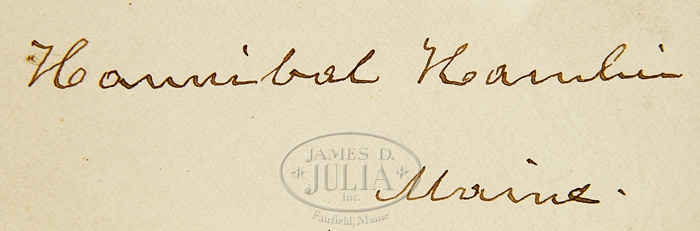 Hannibal Hamlin
JAMES D.
JULIA
Inc.
Maine.
Fairfield, Maine